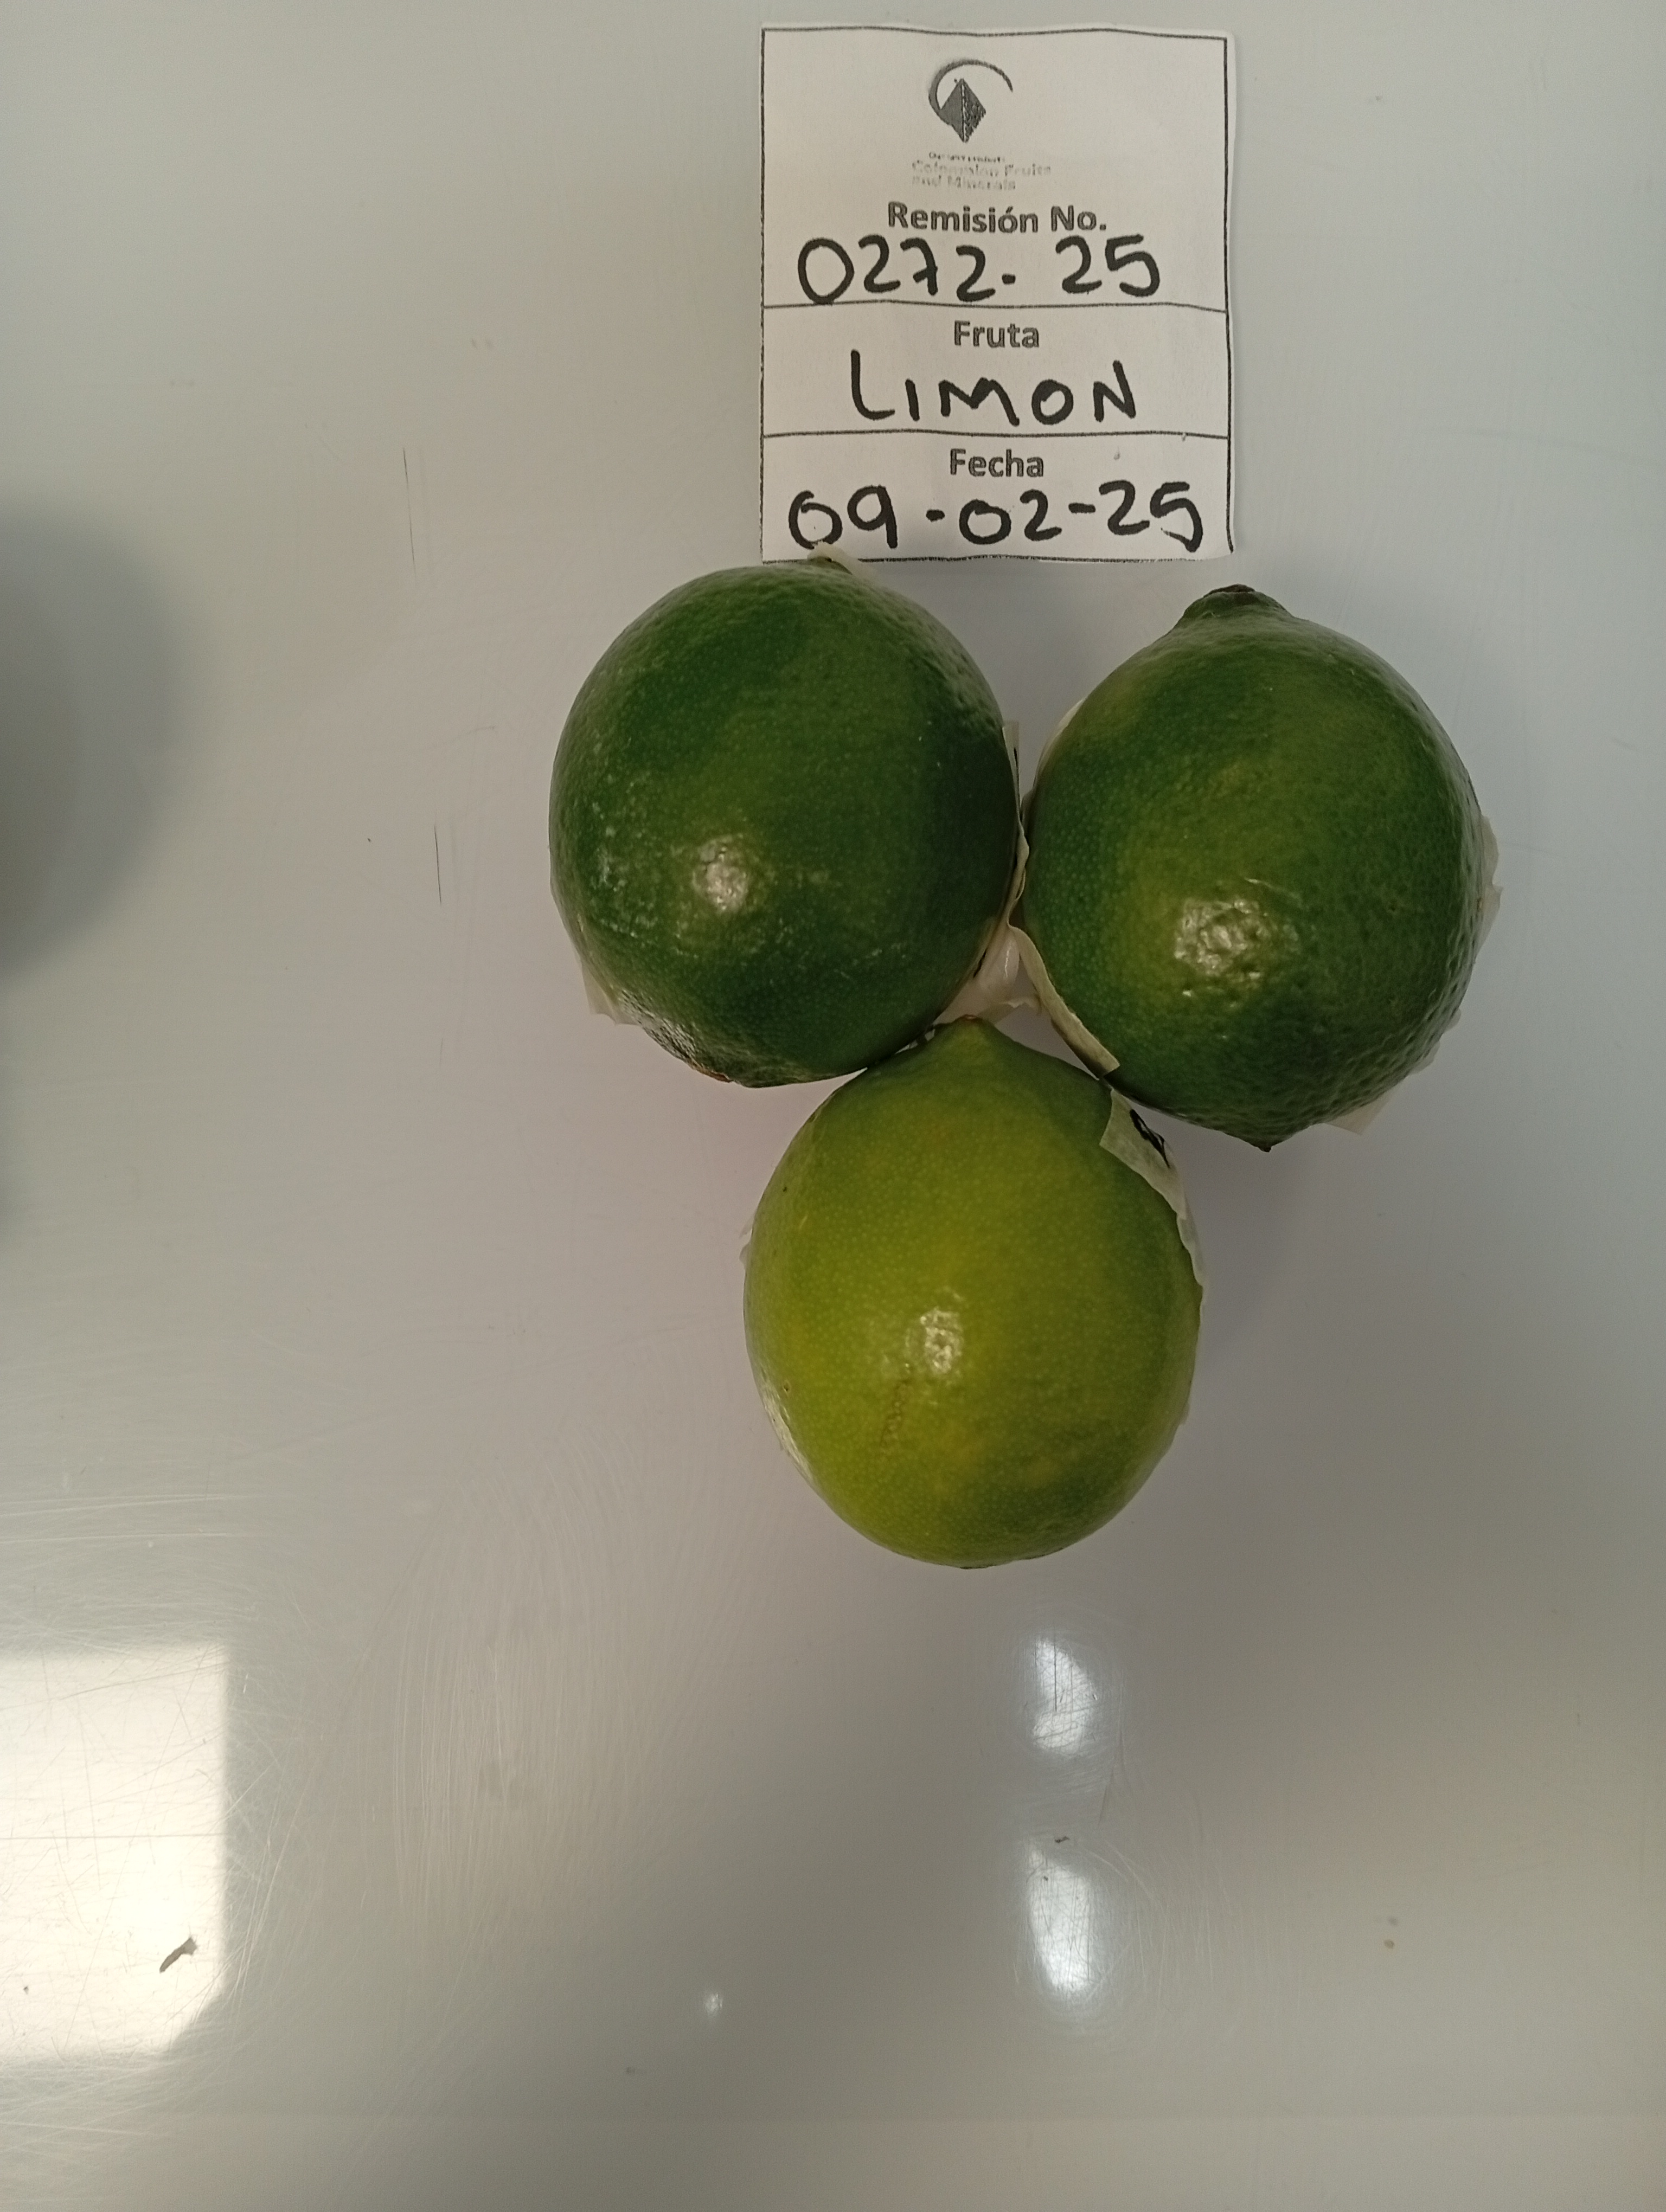 Colombian Fruits
and Minerals
Remisión No.
0272-25
Fruta
LIMON
Fecha
09-02-25